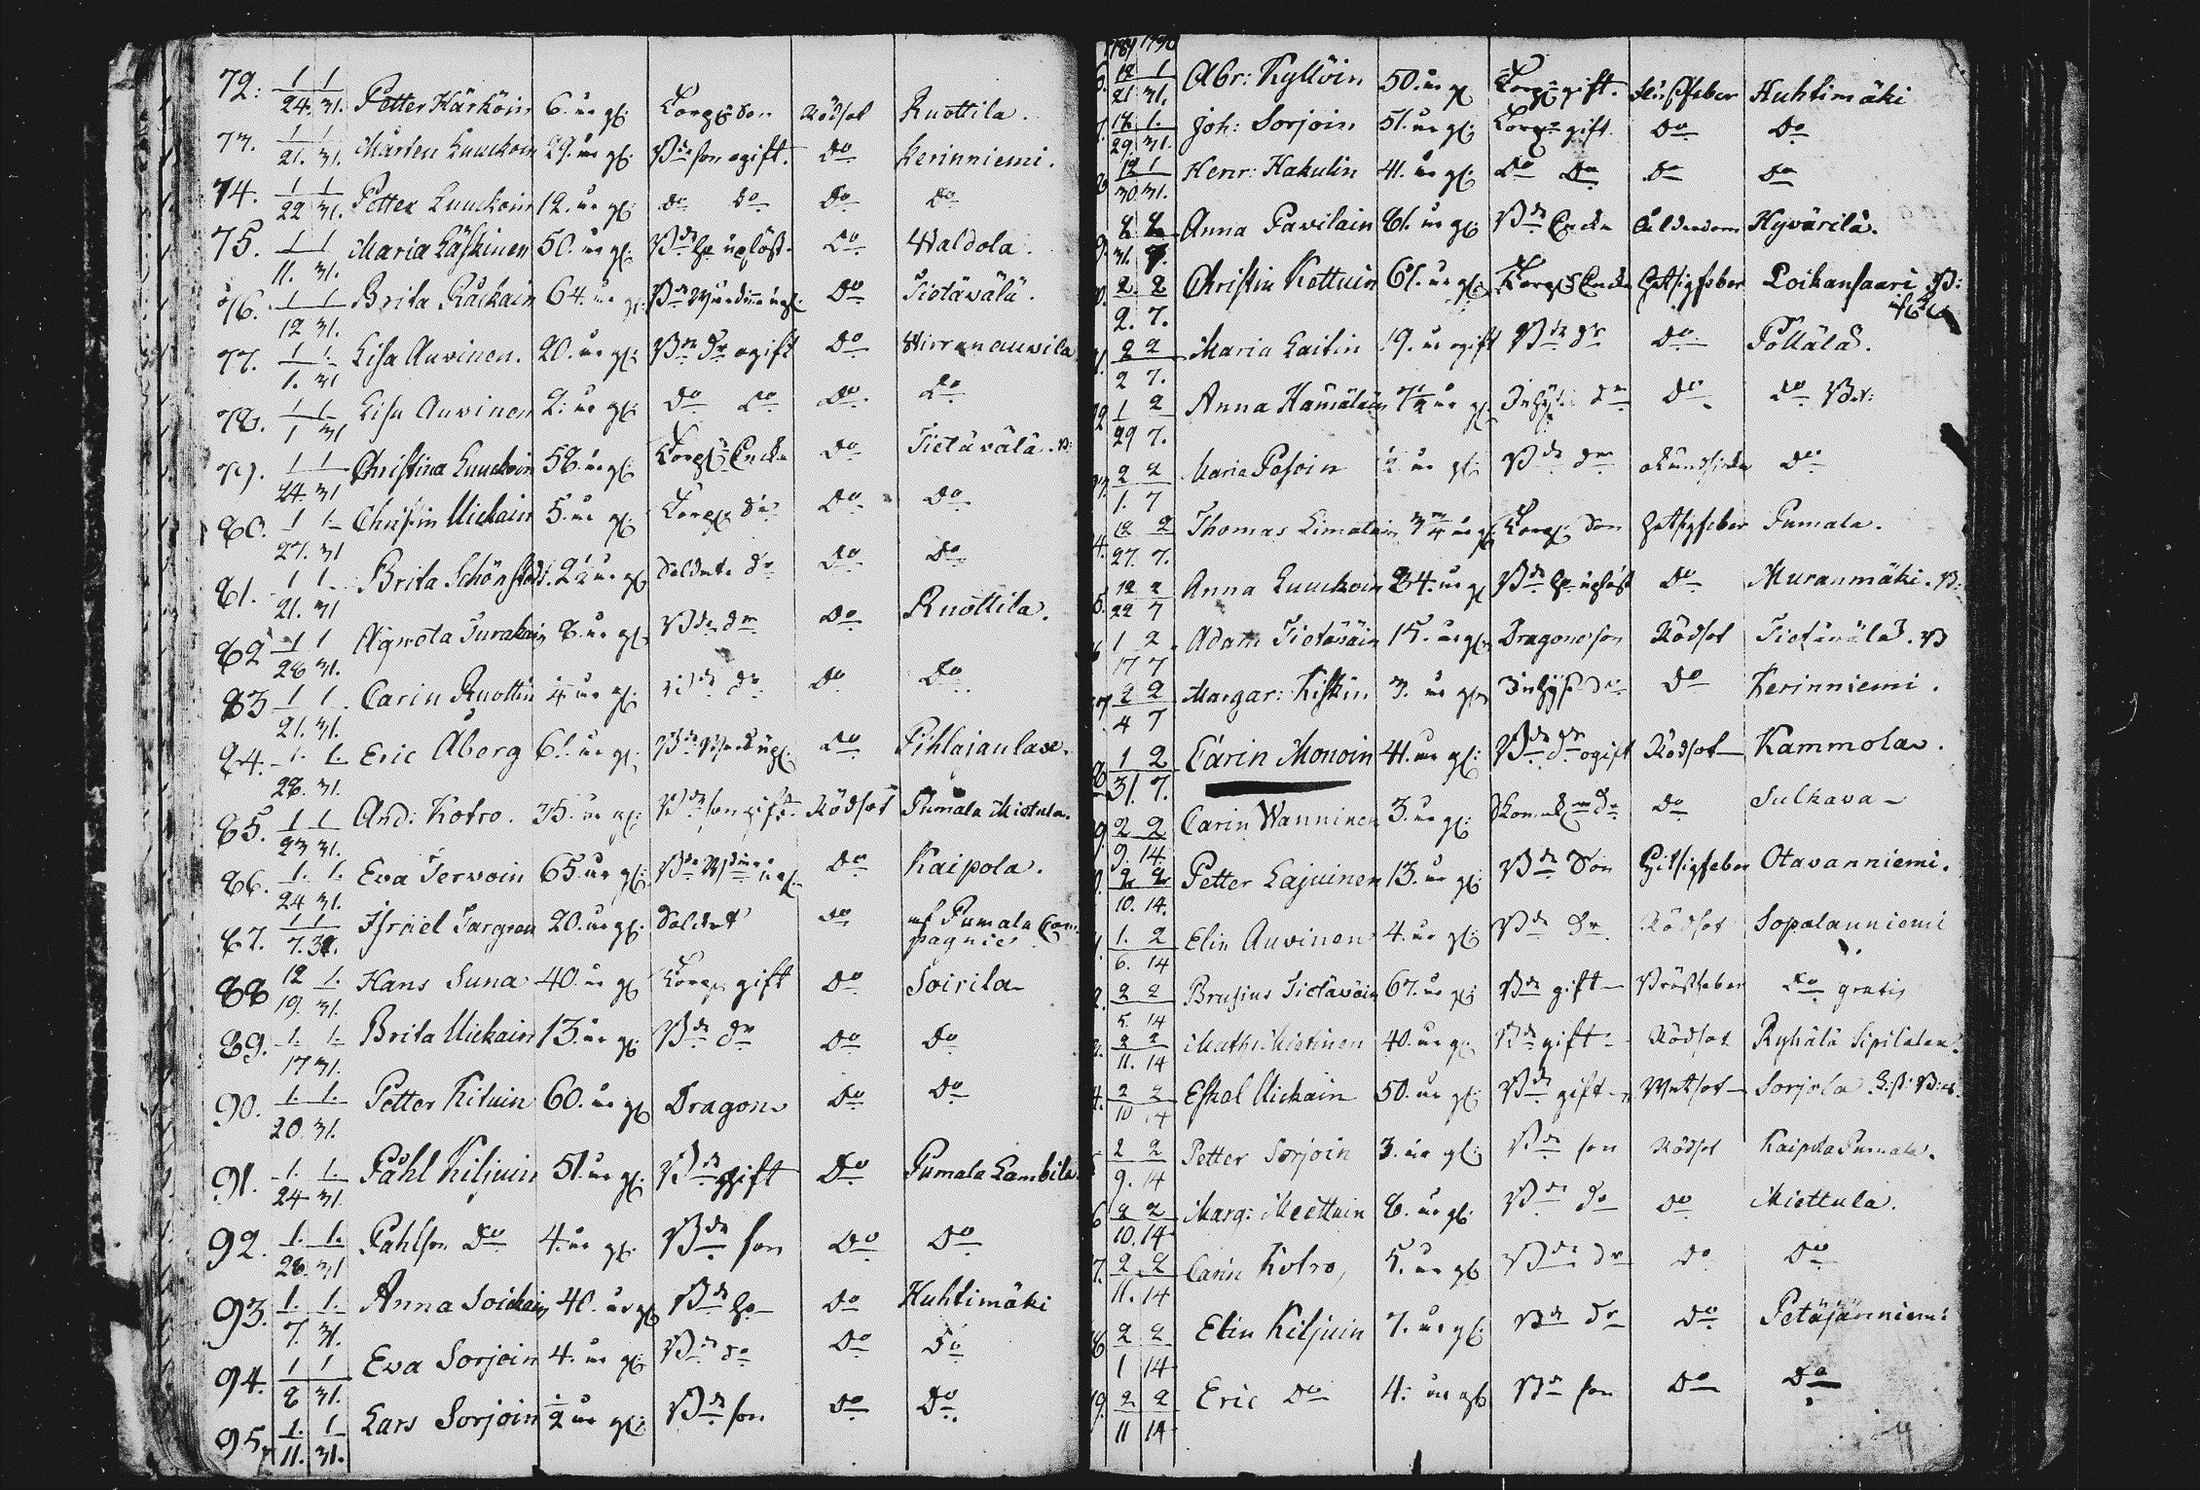 72. 1/24. 1/31. Petter Härköin 6. år gl. Torp: Son Rödsot Ruottila.
73. 1/21. 1/31. Mårten Luuckoin 29. år gl: Bde son ogift. Do Kerinniemi.
74. 1/22 1/31. Petter Luuckoin 12. år gl: Do Do Do Do
75. 1/11. 1/31. Maria Läskinen 50. år gl. Bde Do Waldola.
76. 1/12 1/31. Brita 64. år Bde Do Tietävälä.
77. 1/1. 1/31 Lisa Auvinen. 20. år gl: Bde Dr ogift Do Wirranauvila
78. 1/1 1/31 Lisa Auvinen 2: år gl: Do Do Do Do
79. 1/24. 1/31 Christina Luuckoin 58. år gl: Torp: Encka Do Tietävälä. B:
80. 1/27. 1/31 Christin Uickain 5. år gl. Torp: Dr Do Do
81. 1/21. 1/31 Brita Schönstedt. 2 1/2 år gl Soldats Dr Do Do
82 1/28 1/31. Agneta Turakain 8. år gl. Bde Dr Do Ruottila.
83 1/21. 1/31. Carin Ruottin 4 år gl. Bde Dr Do Do
84. 1/28. 1/31. Eric Åberg 61. år gl. Do Pihlajanlax.
85. 1/23 1/31. And: Kotro. 35. år gl: Bde son gift. Rödsot Pumala Mietula.
86. 1/24 1/31. Eva Tervoin 65 år gl: Bde Do Kaipola.
87. 1/7. 1/31. Israel Targren 20. år gl. Soldat Do af Pumala Com-
pagnie
88 12/19. 1/31. Hans Suna 40. år gl Torp: gift Do Soirila
89. 1/17 1/31. Brita Uickain 13. år gl. Bde Dr Do Do
90. 1/20. 1/31. Petter Kiluin 60. år gl Dragon Do Do
91. 1/24 1/31. Påhl Kiljuin 51. år gl. Bde gift Do Pumala Lambila
92. 1/28. 1/31 Påhlson Do 4. år gl. Bde son Do Do
93. 1/7. 1/31. Anna Soickain 40. år gl Bde Do Huhtimäki
94. 1/8 1/31. Eva Sorjoin 4. år gl. Bde Dr Do Do
95. 1/11. 1/31. Lars Sorjoin 1/2 år gl. Bde son Do Do
1789 1790
12/21. 1/31. Abr: Kyllöin 50. år gl Torp: gift. Huhtimäki
12/29. 1/31. Joh: Sorjoin 51. år gl. Torp: gift. Do Do
12/30 1/31. Henr: Hakulin 41. år gl. Do Do Do Do
9. Anna Pavilain 81. år gl. Bde Encka Ålderdom Hyvärilä.
2/2. 2/7. Christin Kettuin 61. år gl. Torp: Encka Hetsigfeber Poikansaari B:
2/2 2/7. Maria Laitin 19. år ogift Bde Dr Do Pöllälä.
1/29 2/7. Anna Hämäläin 7 1/2 år gl. Inhys: Dr Do Do B:
2/1. 2/7 Maria Pesoin 1/2 år gl. Bde Dr Do
4. 12/27. 2/7. Thomas Limatain 3/4 år gl. Torp: Son Hetsigfeber Pumala.
5. 12/22 2/7 Anna Luuckoin 24. år gl Bde Do Muranmäki. B:
1/17 2/7 Adam Tietäväin 15. år gl. Dragons son Rödsot Tietävälä. B
7. 2/4 2/7 Margar: Kiskin 3. år gl. Inhys: Dr Do Kerinniemi.
8 1/31. 2/7. Carin Monoin 41. år gl. Bde Dr ogift Rödsot Kammola.
9. 2/9. 2/14. Carin Wanninen 3. år gl. Dr Do Sulkava
2/10. 2/14. Petter Lajuinen 13. år gl: Bde Son Hetsigfeber Otavanniemi.
1/6. 2/14 Elin Auvinen 4. år gl: Bde Dr Rödsot Sopalanniemi
2/5. 2/14 Brusius Tietäväin 67. år gl. Bde gift Bröstfeber Do gratis
2/11. 2/14 Math: Mietinen 40. år gl. Bde gift Rödsot Ryhälä Sipilälax:
4. 2/10 2/14 Eskel Uickain 50. år gl. Bde gift Watsot Sorjola
2/9. 2/14 Petter Sorjoin 3. år gl: Bde son Rödsot Kaipola Pumala.
6 2/10. 2/14 Marg: Miettuin 8. år gl. Bde Dr Do Miettula.
7. 2/11. 2/14 Carin Kotro, 5. år gl Bde Dr Do Do
8 2/1 2/14 Elin Kiljuin 7. år gl. Bde Dr Do Petäjänniemi
9. 2/11 2/14 Eric Do 4: år gl Bde son Do Do